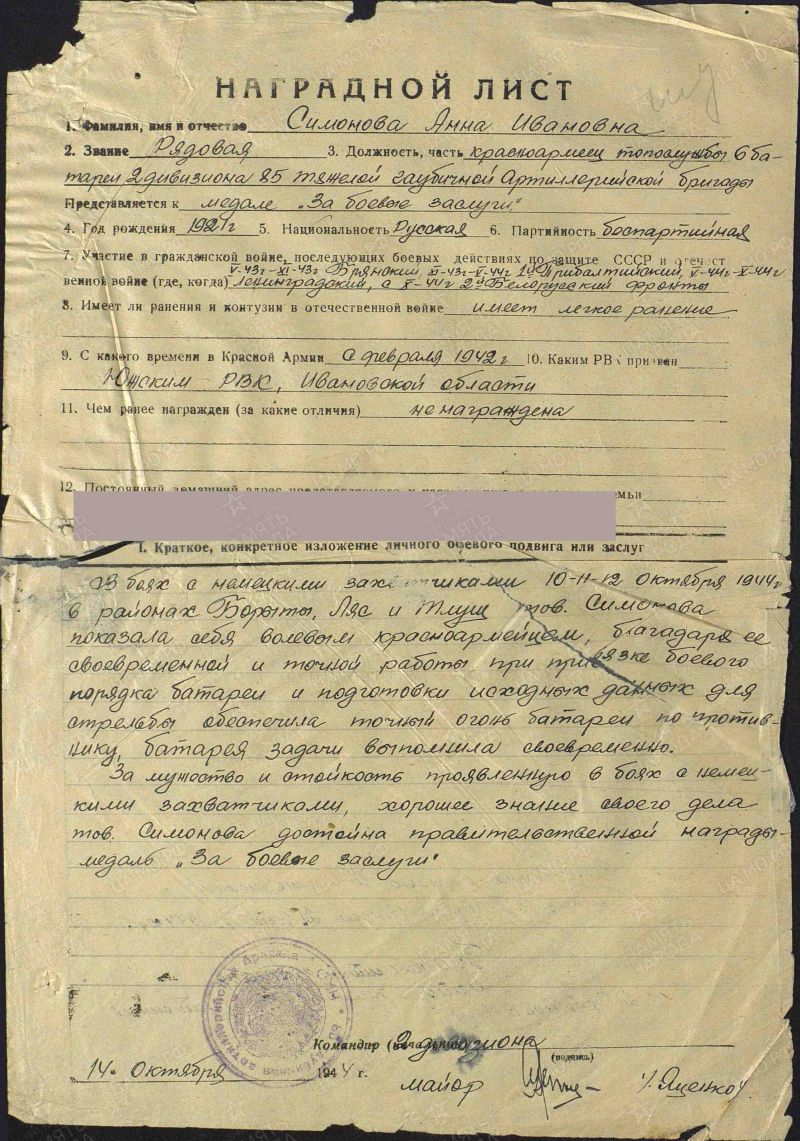 НАГРАДНОЙ ЛИСТ
1. Фамилия, имя и отчество Симонова Анна Ивановна
2. Звание Рядовая 3. Должность, часть красноармеец топослужбы 6 ба-
тареи 2 дивизиона 85 тяжелой гаубичной Артиллерийской бригады
Представляется к медале „За боевые заслуги"
4. Год рождения 1921 г 5. Национальность Русская 6. Партийность беспартийная
7. Участие в гражданской войне, последующих боевых действиях по защите СССР и отечест
V-43г-XI-43г Брянский, XI-43г-V-44г 2й Прибалтийский, V-44г-X-44г
венной войне (где, когда) Ленинградский, с X-44г 2й Белорусский фронты
8. Имеет ли ранения и контузии в отечественной войне имеет легкое ранение
9. С какого времени в Красной Армии с февраля 1942 г 10. Каким РВК призван
Южским РВК, Ивановской области
11. Чем ранее награжден (за какие отличия) не награждена
12. Постоянный домашний адрес представляемого к
1. Краткое, конкретное изложение личного боевого подвига или заслуг
В боях с немецкими захватчиками 10-11-12 октября 1944г
в районах Борыты, Ляс и Тлущ тов. Симонова
показала себя волевым красноармейцем, благадаря ее
своевременной и точной работы при привязке боевого
порядка батареи и подготовки исходных данных для
стрельбы обеспечила точный огонь батареи по против-
нику, батарея задачи выпомнила своевременно.
За мужество и стойкость проявленную в боях с немец-
кими захватчиками, хорошее знание своего дела
тов. Симонова достойна правительственной награды-
медаль „За боевые заслуги"
Командир 2 дивизиона
(подпись)
14 октября 1944 г.
майор /Ященко/